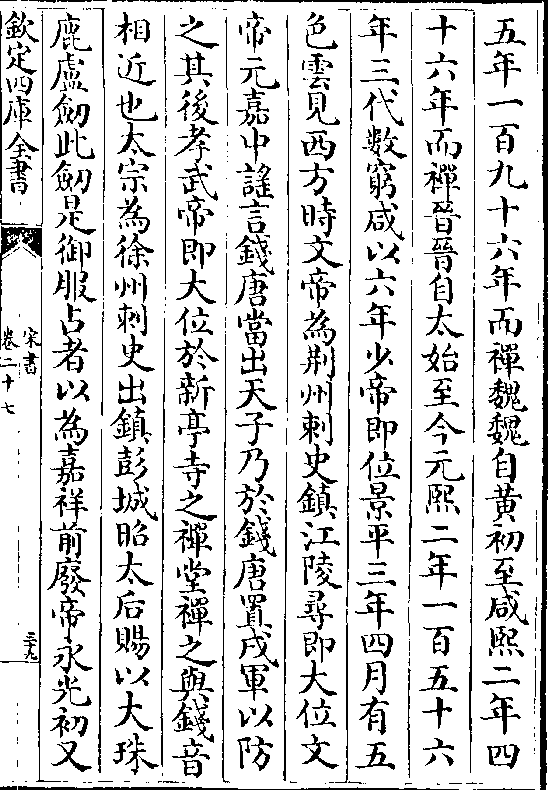 五年一百九十六年而禪魏魏自黄初至咸熙二年四
十六年而禪晉晉自太始至今元熙二年一百五十六
年三代數窮咸以六年少帝即位景平三年四月有五
色雲見西方時文帝為荆州刺史鎮江陵尋即大位文
帝元嘉中謠言錢唐當出天子乃於錢唐置戍軍以防
之其後孝武帝即大位於新亭寺之禪堂禪之與錢音
相近也太宗為徐州刺史出鎮彭城昭太后賜以大珠
鹿盧劒此劒是御服占者以為嘉祥前廢帝永光初又
欽定四庫全書
宋書
卷二十七
三九